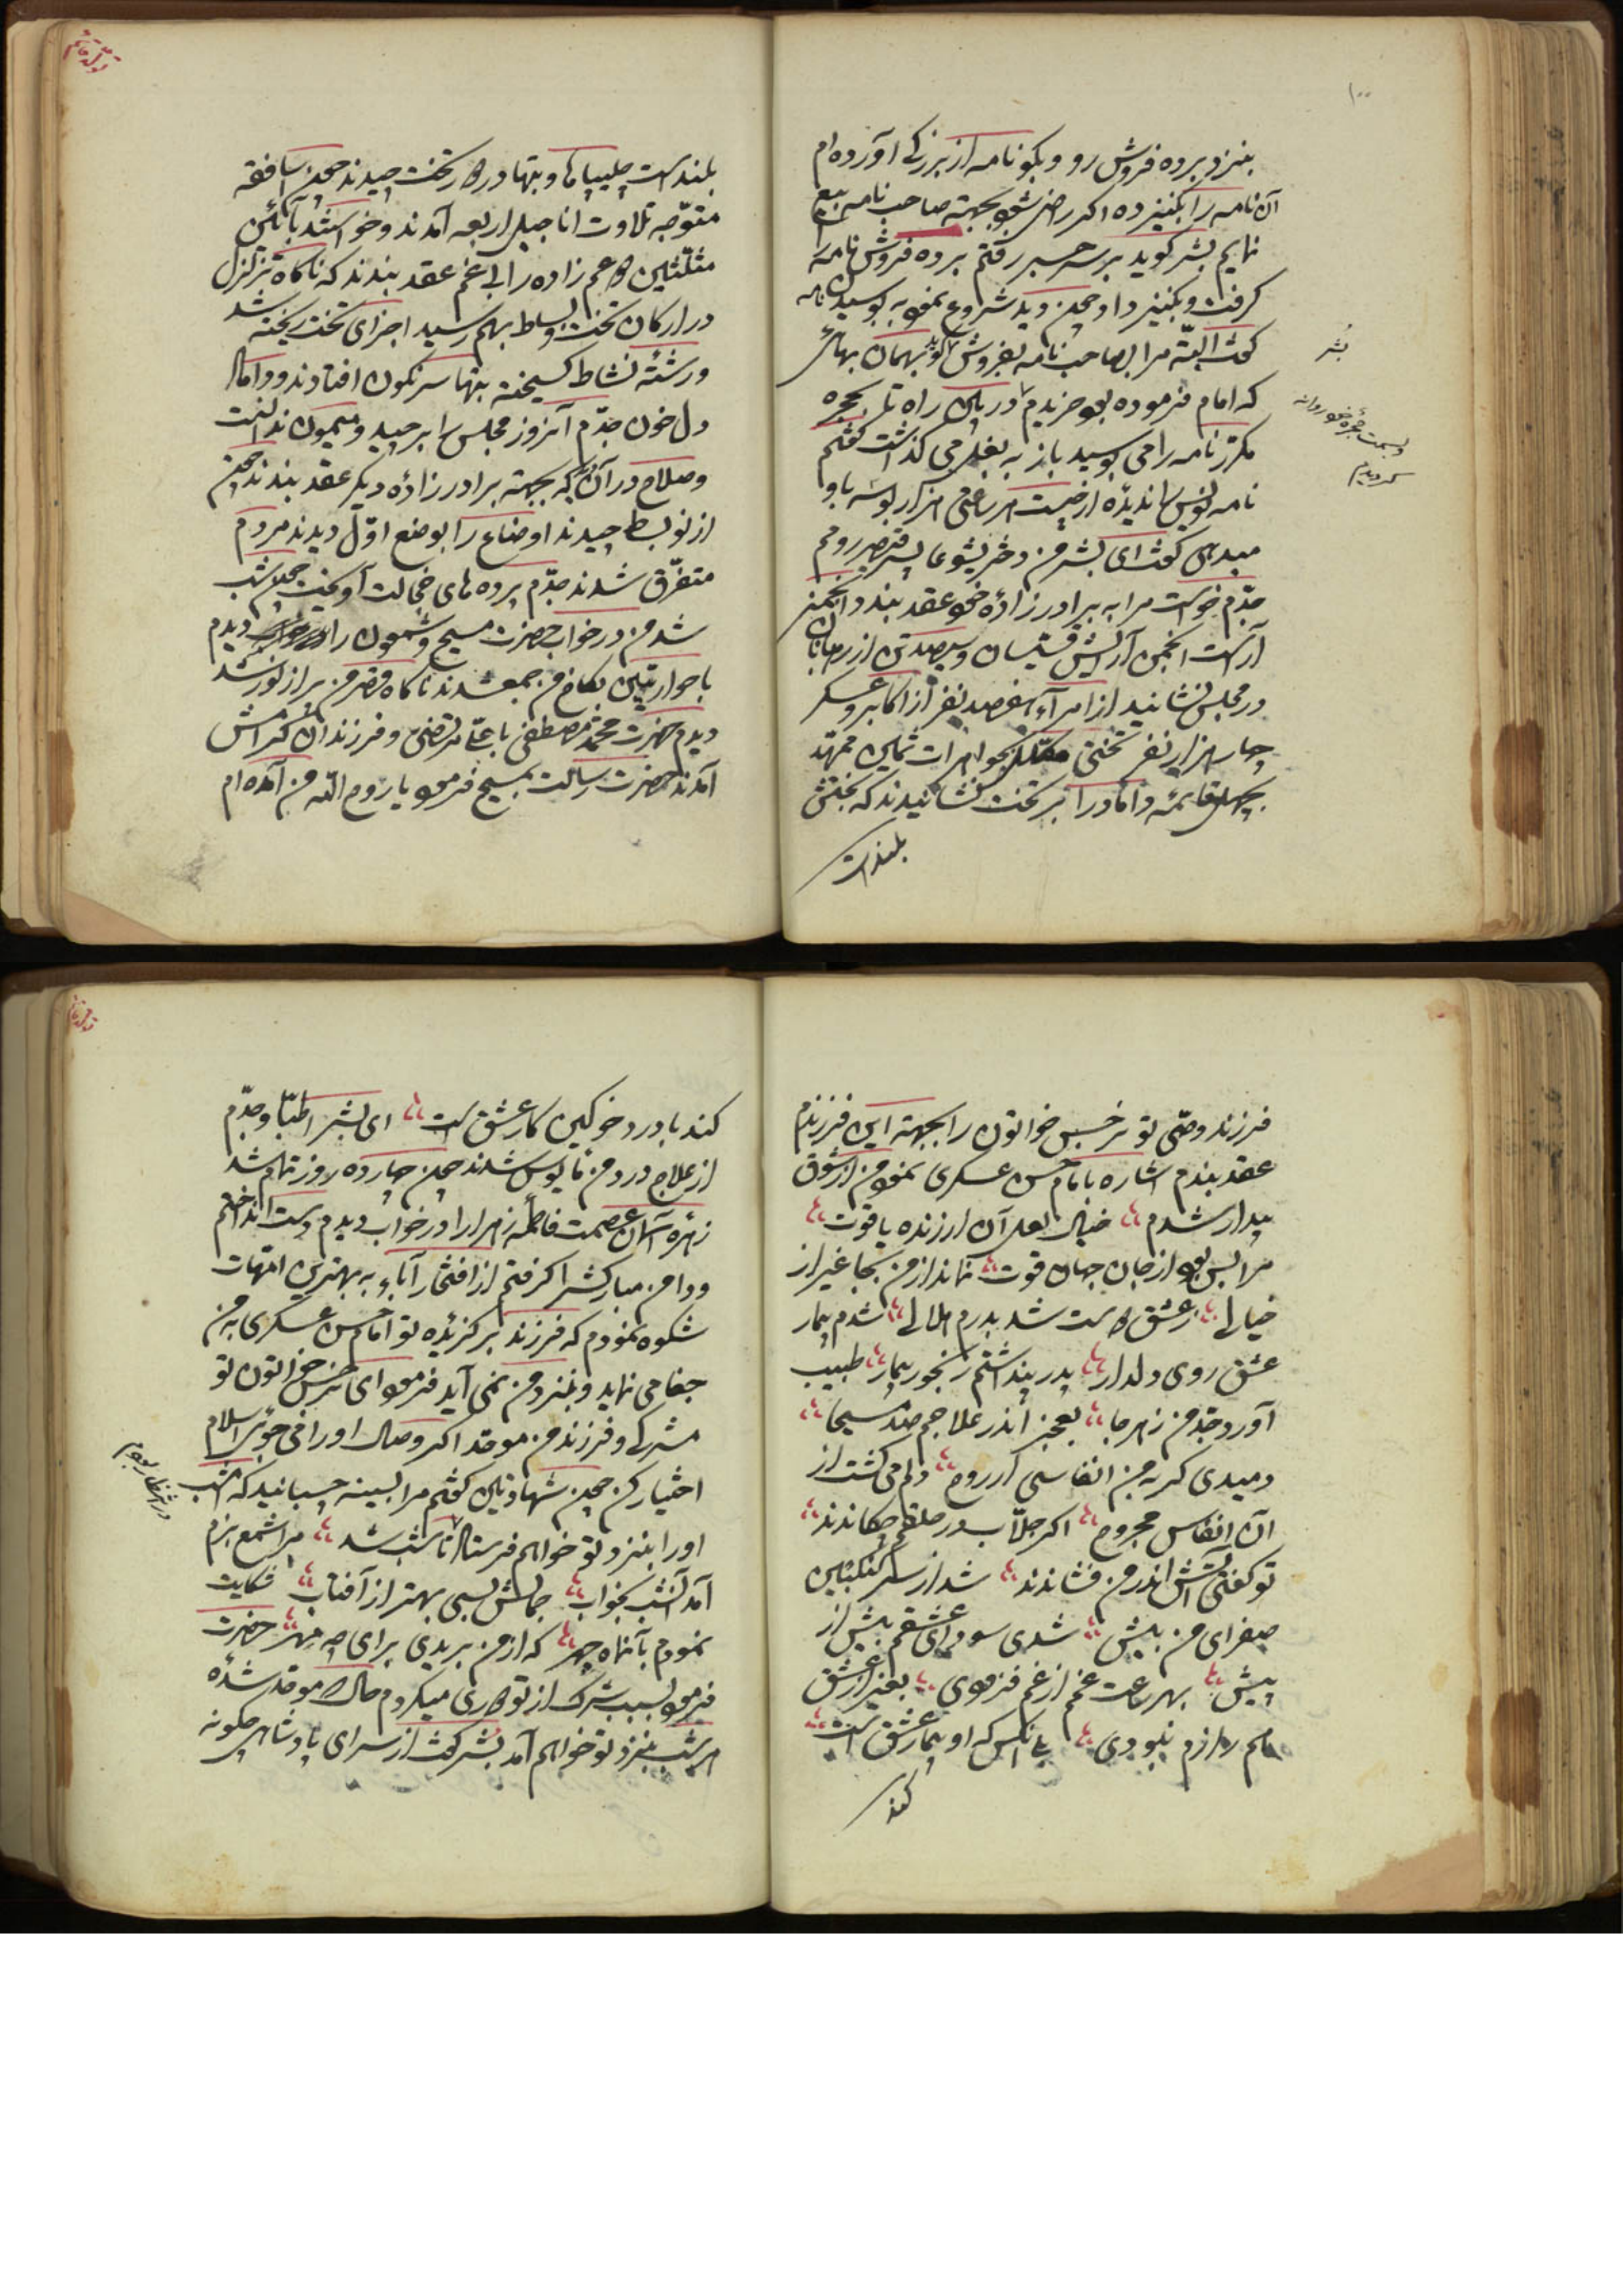 ۱۰۰
بنزد برده فروش رو و بگو نامه از بزرگی آورده‌ام
آن نامه را بکنیز ده اگر راضی شود بجهته صاحب نامه بیع
نمایم بشر گوید برسر جسر رفتم برده فروش نامه را
گرفت و بکنیز داد چون دید شروع نمود به بوسیدن نامه
گفت البته مرا بصاحب نامه بفروش بهمان بهائی
که امام فرموده بود خریدم در بین راه تا بحجره
مکرر نامه را می بوسید باز به بغل می گذاشت گفتم
نامه نویس را ندیده از چیست هر ساعتی هزار بوسه باو
میدهی گفت ای بشر من دختر یشوعا پسر قیصر رومم
جدم خواست مرا به برادر زاده خود عقد بندد انجمنی
آراست انجمن آرایش قسیسان و سیصد تن از رهبانان
در مجلس نشانید از امراء هفصد نفر از اکابر و عسکر
چهار هزار نفر تختی مکلل بجواهرات ثمین ممهد
بچهل قائمه داماد را بر تخت نشانیدند که بختش
بلند است
بشر
بسمت حجره خود روانه
گردیدم
تولد قائم
بلند است چلیپاها و بتها در کنار تخت چیدند چون اساقفه
متوجه تلاوت اناجیل اربعه آمدند و خواستند بآئین
مثلثین عم زاده را با عم عقد بندند که ناگاه تزلزل
در ارکان تخت و بساط بهم رسید اجزای تخت ریخته شد
و رشته نشاط گسیخته بتها سرنگون افتادند و داماد
دل خون جدم آنروز مجلس را برچید و میمون ندانست
و صلاح در آن دید که بجهته برادر زاده دیگر عقد بندند چون
از نو بسط چیدند اوضاع را بوضع اول دیدند مردم
متفرق شدند جدم پرده های خجالت آویخت چون شب
شد من در خواب حضرت مسیح و شمعون را دیدم
با حواریین بکاخ من جمع شدند ناگاه قصر من پر از نور شد
دیدم حضرت محمد مصطفی با علی مرتضی و فرزندان گرامش
آمدند حضرت رسالت بمسیح فرمود یا روح الله من آمده‌ام
فرزند وصی تو نرجس خواتون را بجهته این فرزندم
عقد بندم اشاره بامام حسن عسکری نمود من از شوق
بیدار شدم خیال لعل آن ارزنده یاقوت
مرا بس بود از جان جهان قوت نماند از من بجا غیر از
خیالی ز عشق کاست شد بدرم هلالی شدم بیمار
عشق روی دلدار پدر پنداشتم رنجور بیمار طبیب
آورد جدم من زهر جا بعجز اندر علاجم صد مسیحا
دمیدی گر به من انفاسی از روح دلم می گشت از
آن انفاس مجروح اگر جلاب در حلقم چکاندند
تو گفتی آتش اندر من فشاندند شد از سرکنگبین
صفرای من بیش شدی سودای عشقم بیش از
پیش بهر ساعت غمم از غم فزودی بغیر از عشق
هم رازم نبودی با آنکس که او بیمار عشق است
کند
تولد قائم
کند با درد خو کین کار عشق است ای بشر اطبا و جدم
از علاج درد من مایوس شدند چون چهارده روز تمام شد
زهره آسمان عصمت فاطمه زهرا را در خواب دیدم دست انداختم
و دامن مبارکش را گرفتم از افتخار آباء به بهترین امهات
شکوه نمودم که فرزند برگزیده تو امام حسن عسکری به من
جفا می نماید و بنزد من نمی آید فرمود ای نرجس خواتون تو
مشرکی و فرزند من موحد اگر وصال او را می جوئی اسلام
اختیار کن چون شهادتین گفتم مرا بسینه چسبانید که امشب
او را بنزد تو خواهم فرستاد تا شب شد مرا شمع بزم
آمد آنشب بخواب جمالش بسی بهتر از آفتاب شکایت
نمودم بآنماه چهر که از من بریدی برای چه مهر حضرت
فرمود بسبب شرک از تو دوری میکردم حال که موحد شده
هر شب بنزد تو خواهم آمد بشر گفت از سرای پادشاهی چگونه
در انتظار بودم